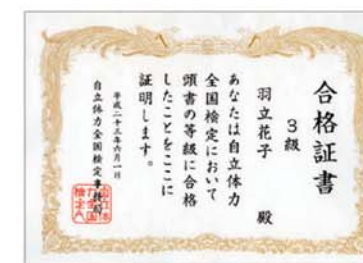 合格証書
3級
羽立花子 殿
あなたは自立体力
全国検定において
頭書の等級に合格
したことをここに
証明します。
平成二十三年六月一日
自立体力全国検定事務局